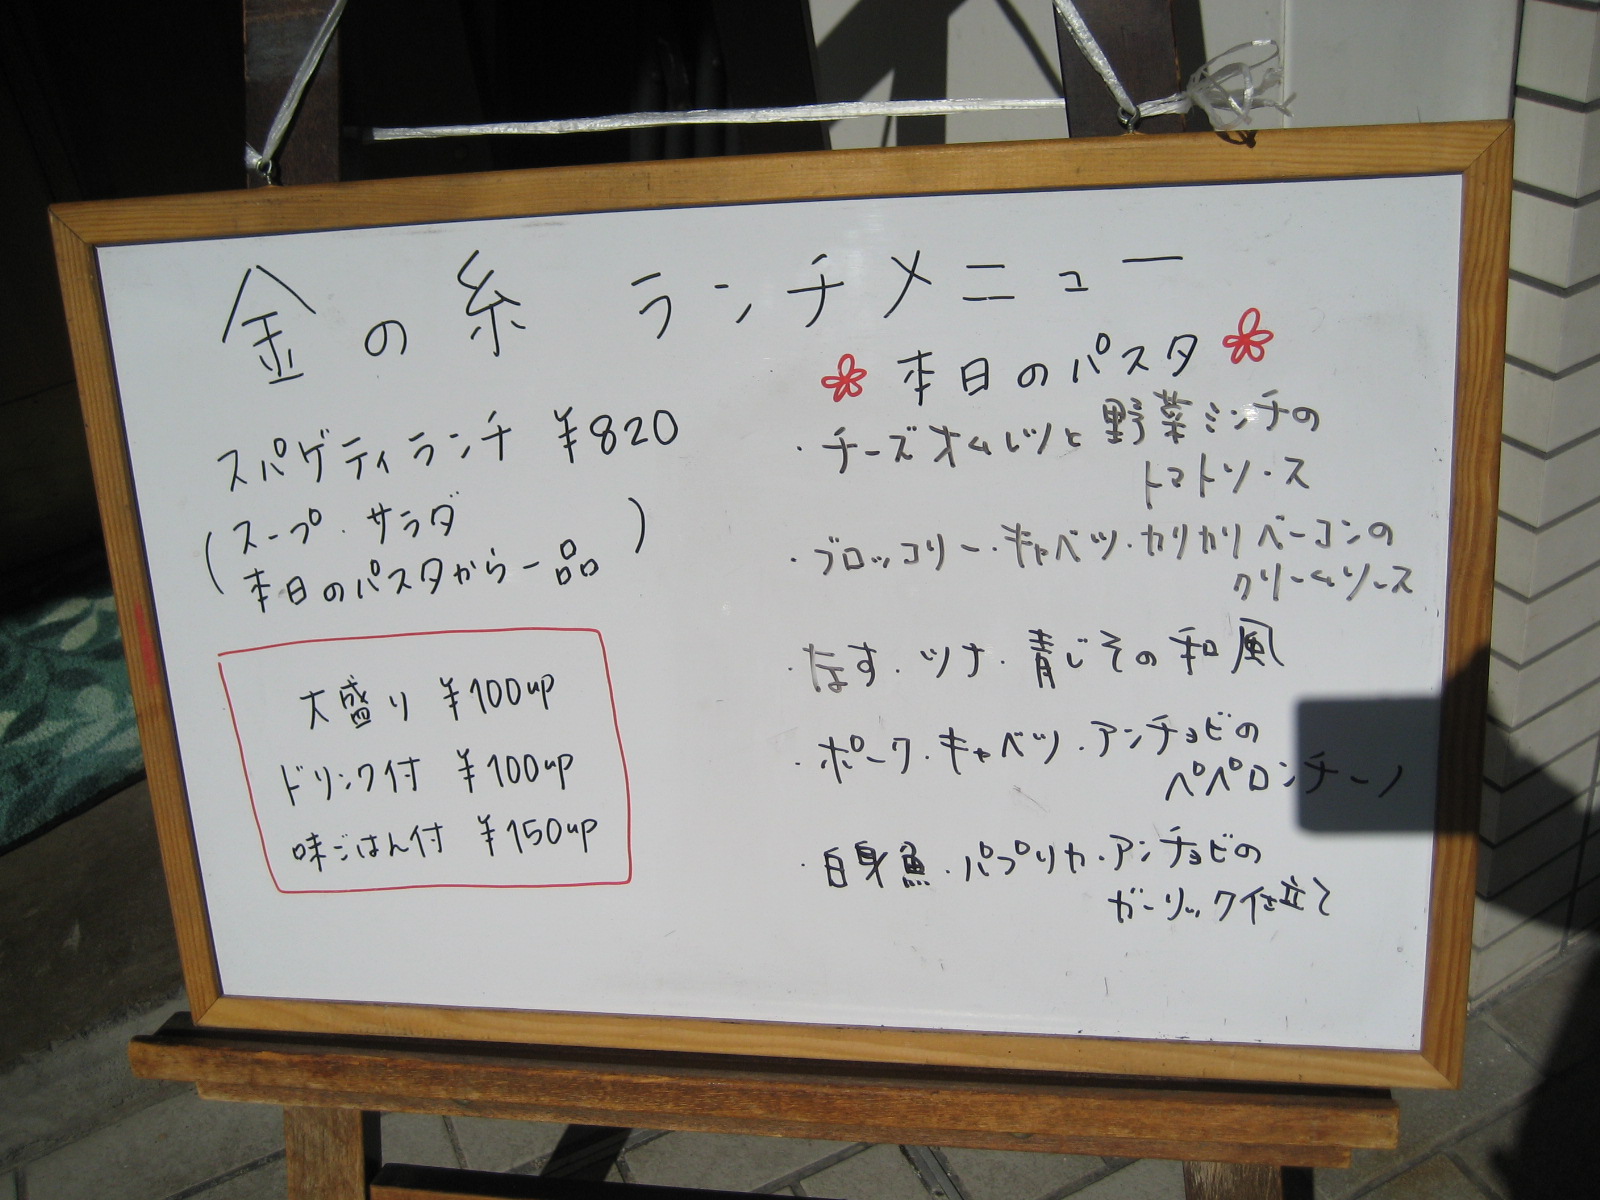 金の糸 ランチメニュー
スパゲティランチ ¥820
(スープ・サラダ
本日のパスタから一品)
大盛り ¥100up
ドリンク付 ¥100up
味ごはん付 ¥150up
本日のパスタ
・チーズオムレツと野菜ミンチの
トマトソース
・ブロッコリー・キャベツ・カリカリベーコンの
クリームソース
・なす・ツナ・青じその和風
・ポーク・キャベツ・アンチョビの
ペペロンチーノ
・白身魚・パプリカ・アンチョビの
ガーリック仕立て